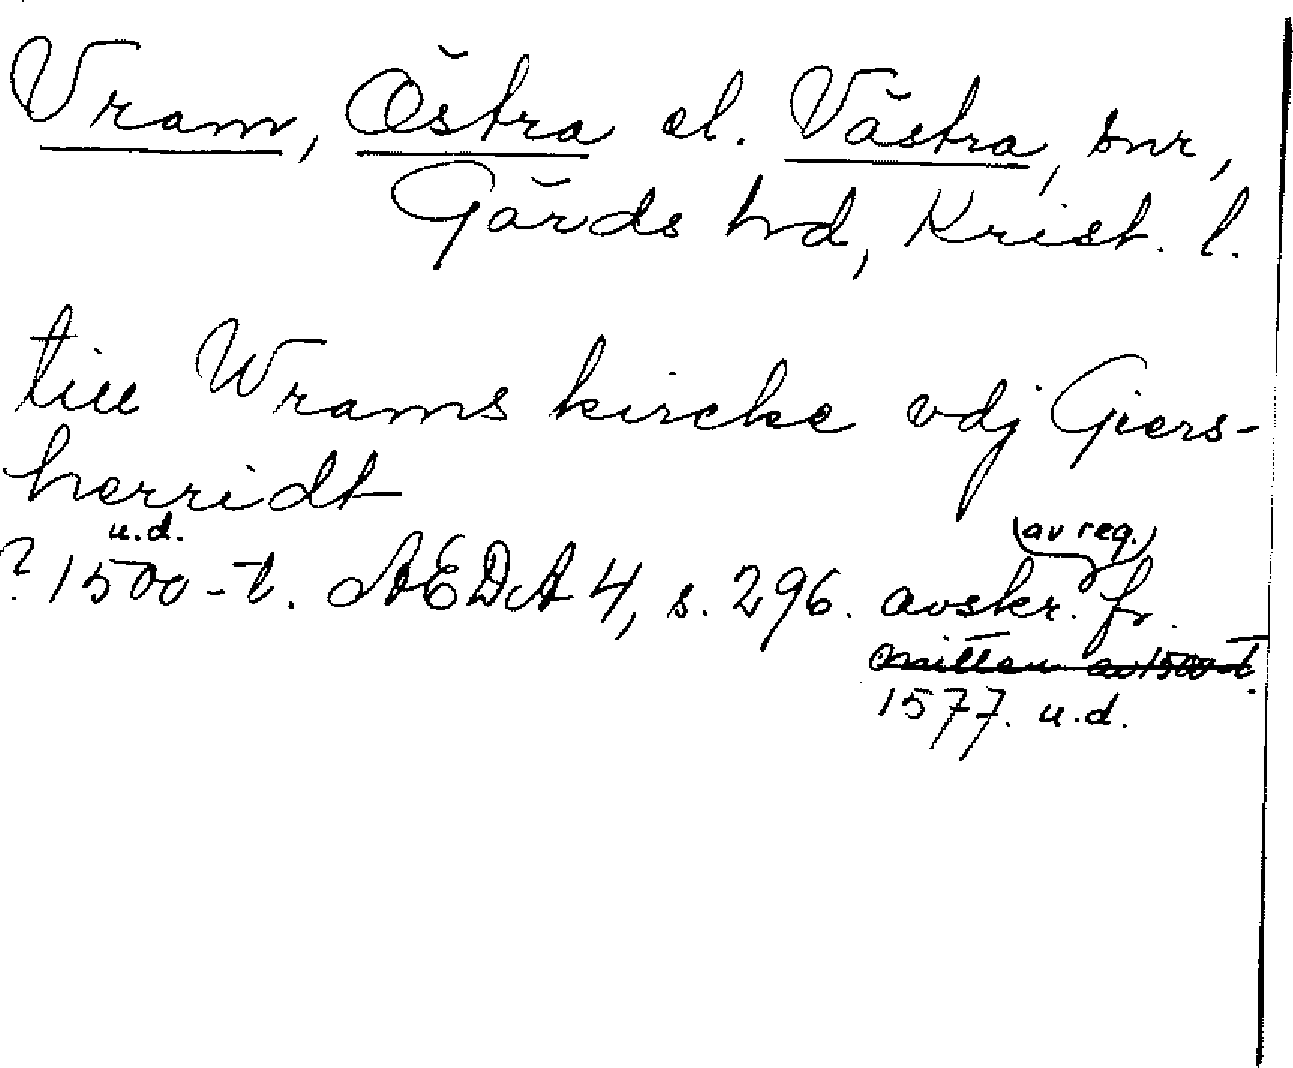 Vram, Östra el. Västra, snr,
Gärds hd, Krist. l.
till Wrams kircke vdj Giers-
herridt
u.d.
(av reg.)
? 1500-t. AEDA 4, s. 296. avskr. fr.
mitten av 1500-t.
1577. u.d.